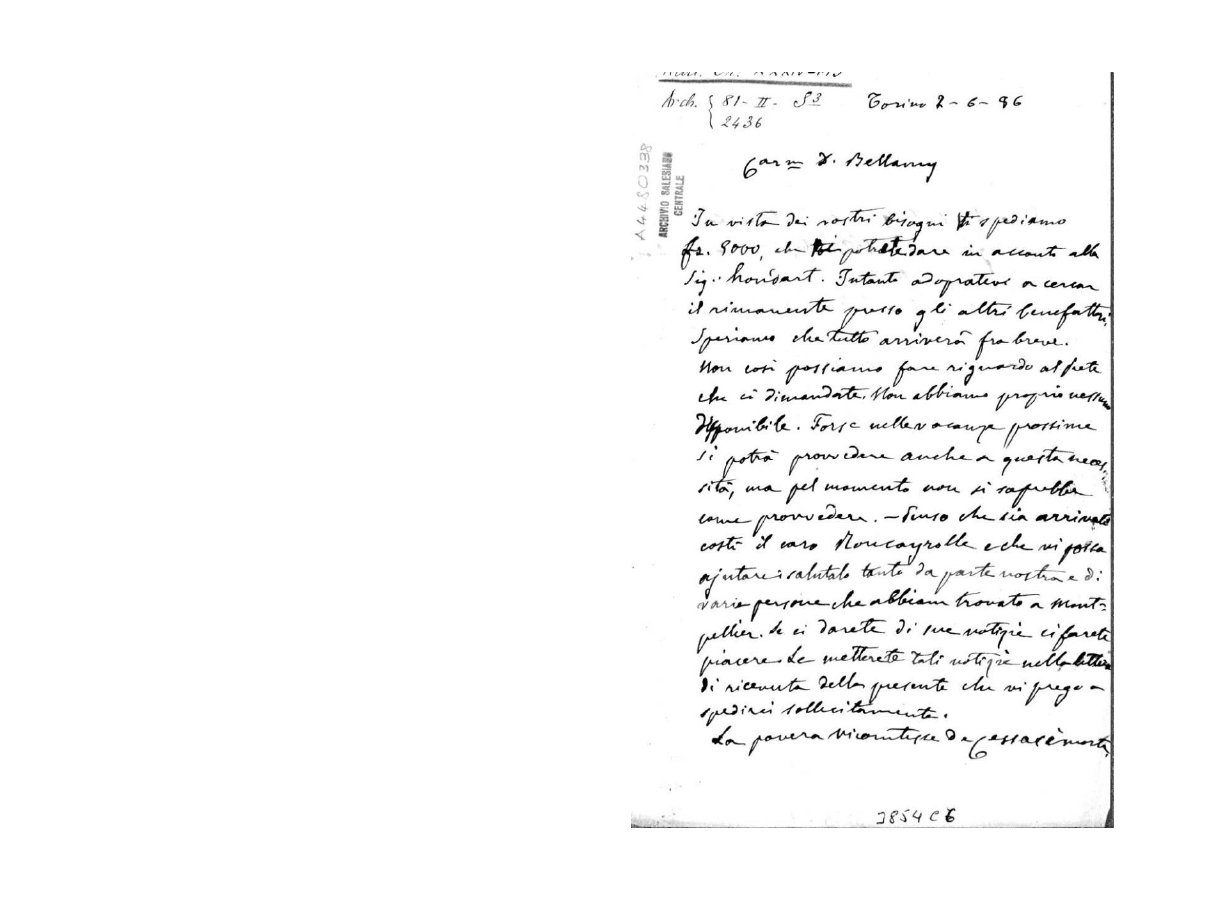 Arch. 81 - II - S3 Torino 2 - 6 - 96
2436
A4480338
ARCHIVIO SALESIANO
CENTRALE
Carm D. Bellamy
In vista dei vostri bisogni vi spediamo
fr. 9000, che potrete dare in acconto alla
Sig. . Intanto adopratevi a cercar
il rimanente presso gli altri benefattori.
Speriamo che tutto arriverà fra breve.
Non così possiamo fare riguardo al prete
che ci dimandate. Non abbiamo proprio nessuno
disponibile. Forse nelle vacanze prossime
si potrà provvedere anche a questa neces-
sità, ma pel momento non si saprebbe
come provvedere. - Penso che sia arrivato
costì il caro Moncayrolle e che vi possa
ajutare: salutalo tanto da parte nostra e di
varie persone che abbiam trovato a Mont-
pellier. Se ci darete di sue notizie ci farete
piacere. Le metterete tali notizie nella lettera
di ricevuta della presente che vi prego a
spedirci sollecitamente.
La povera Vicomtesse de Cessac è morta,
3854 C6